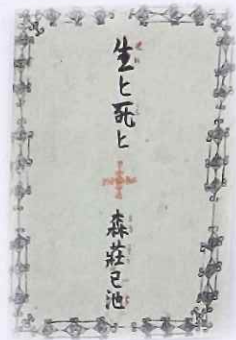 生と死と
森荘已池